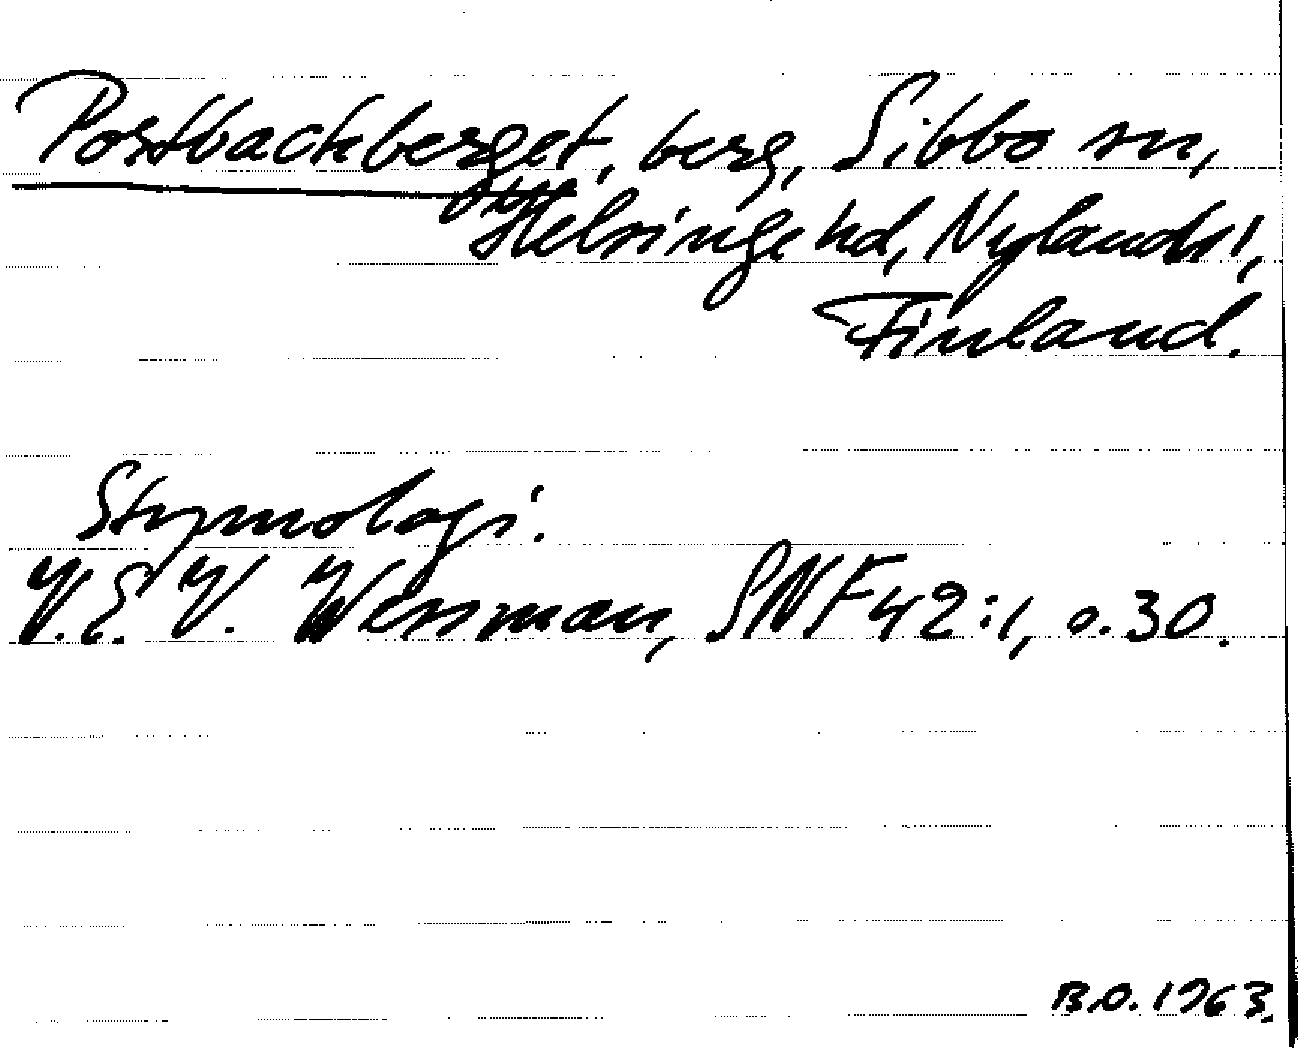 Postbackberget, berg, Sibbo sn,
Helsinge hd, Nylands l,
Finland.
Etymologi.
V.E.V. Wessman, SNF 42:1, s. 30.
B.O. 1963.